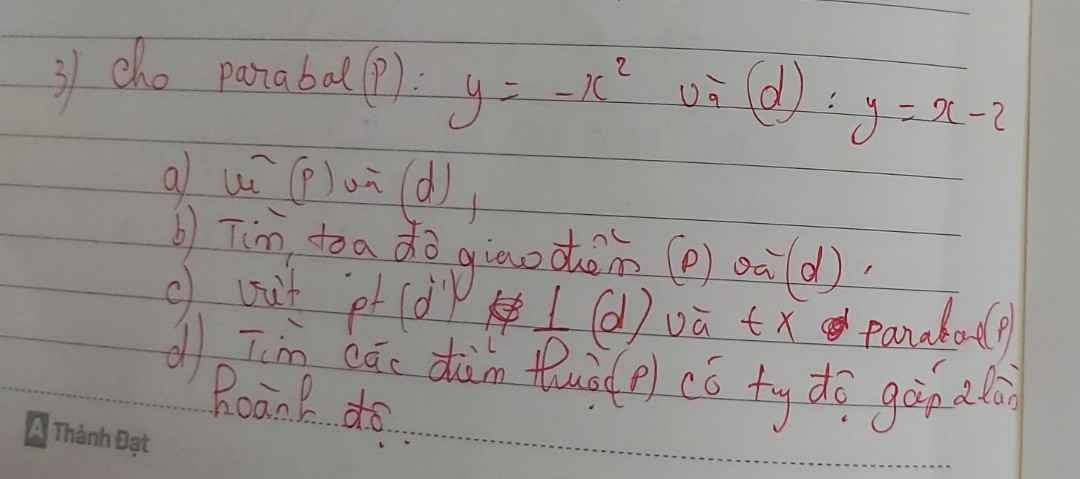 3) cho parabal (P): y = -x² và (d): y = x-2
a) vẽ (P) và (d),
b) Tìm tọa độ giao điểm (P) và (d).
c) viết pt (d') ⊥ (d) và tx parabol (P)
d) Tìm các điểm thuộc (P) có tụ độ gấp 2 lần
hoành độ.
Thành Đạt